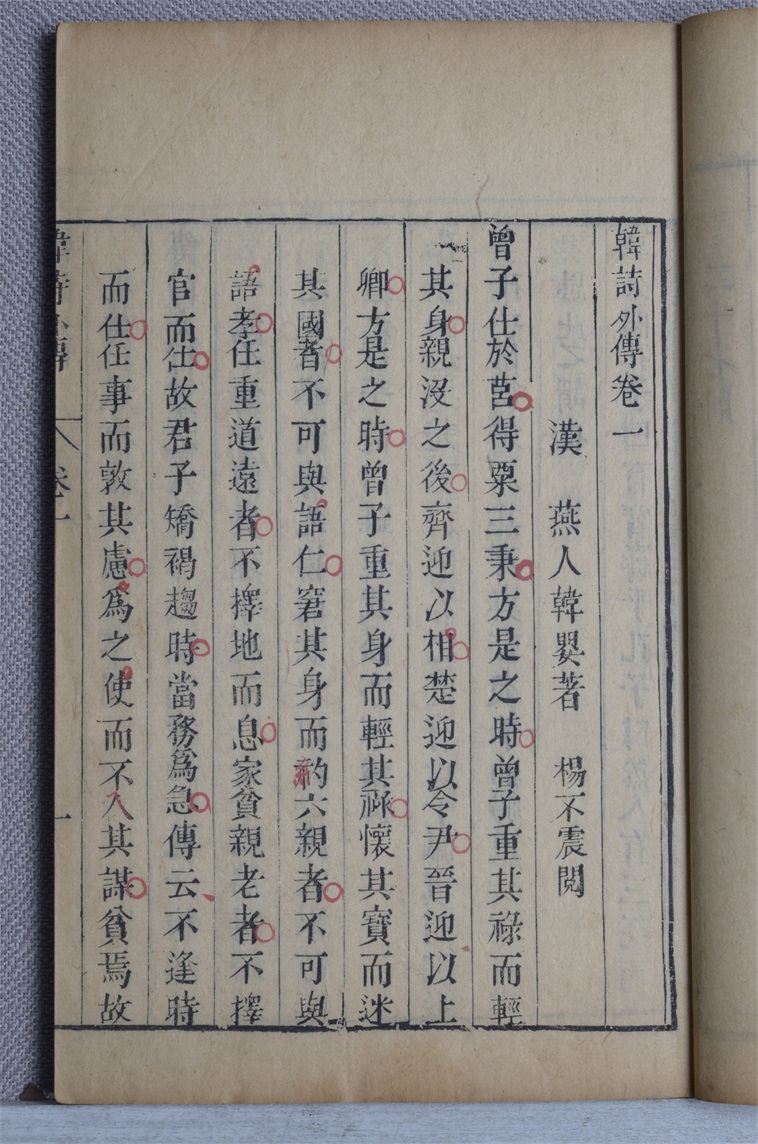 韓詩外傳卷一
漢　燕人韓嬰著　楊不震閱
曾子仕於莒得粟三秉方是之時曾子重其祿而輕
其身親沒之後齊迎以相楚迎以令尹晉迎以上
卿方是之時曾子重其身而輕其祿懷其寶而迷
其國者不可與語仁窘其身而約六親者不可與
語孝任重道遠者不擇地而息家貧親老者不擇
官而仕故君子矯褐趨時當務爲急傳云不逢時
而仕任事而敦其慮爲之使而不入其謀貧焉故
韓詩外傳　卷一　一